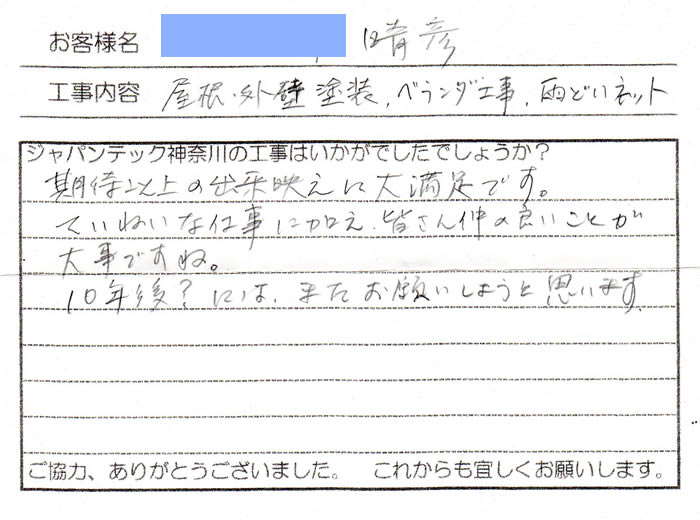 お客様名 晴彦
工事内容 屋根・外壁塗装、ベランダ工事、雨どいネット
ジャパンテック神奈川の工事はいかがでしたでしょうか？
期待以上の出来映えに大満足です。
ていねいな仕事に加え、皆さん仲の良いことが
大事ですね。
10年後？には、またお願いしようと思います。
ご協力、ありがとうございました。 これからも宜しくお願いします。